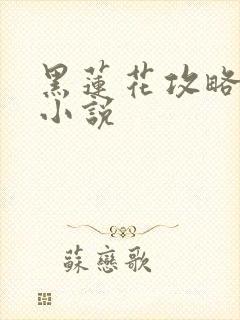 黑蓮花攻略
小說
蘇戀歌